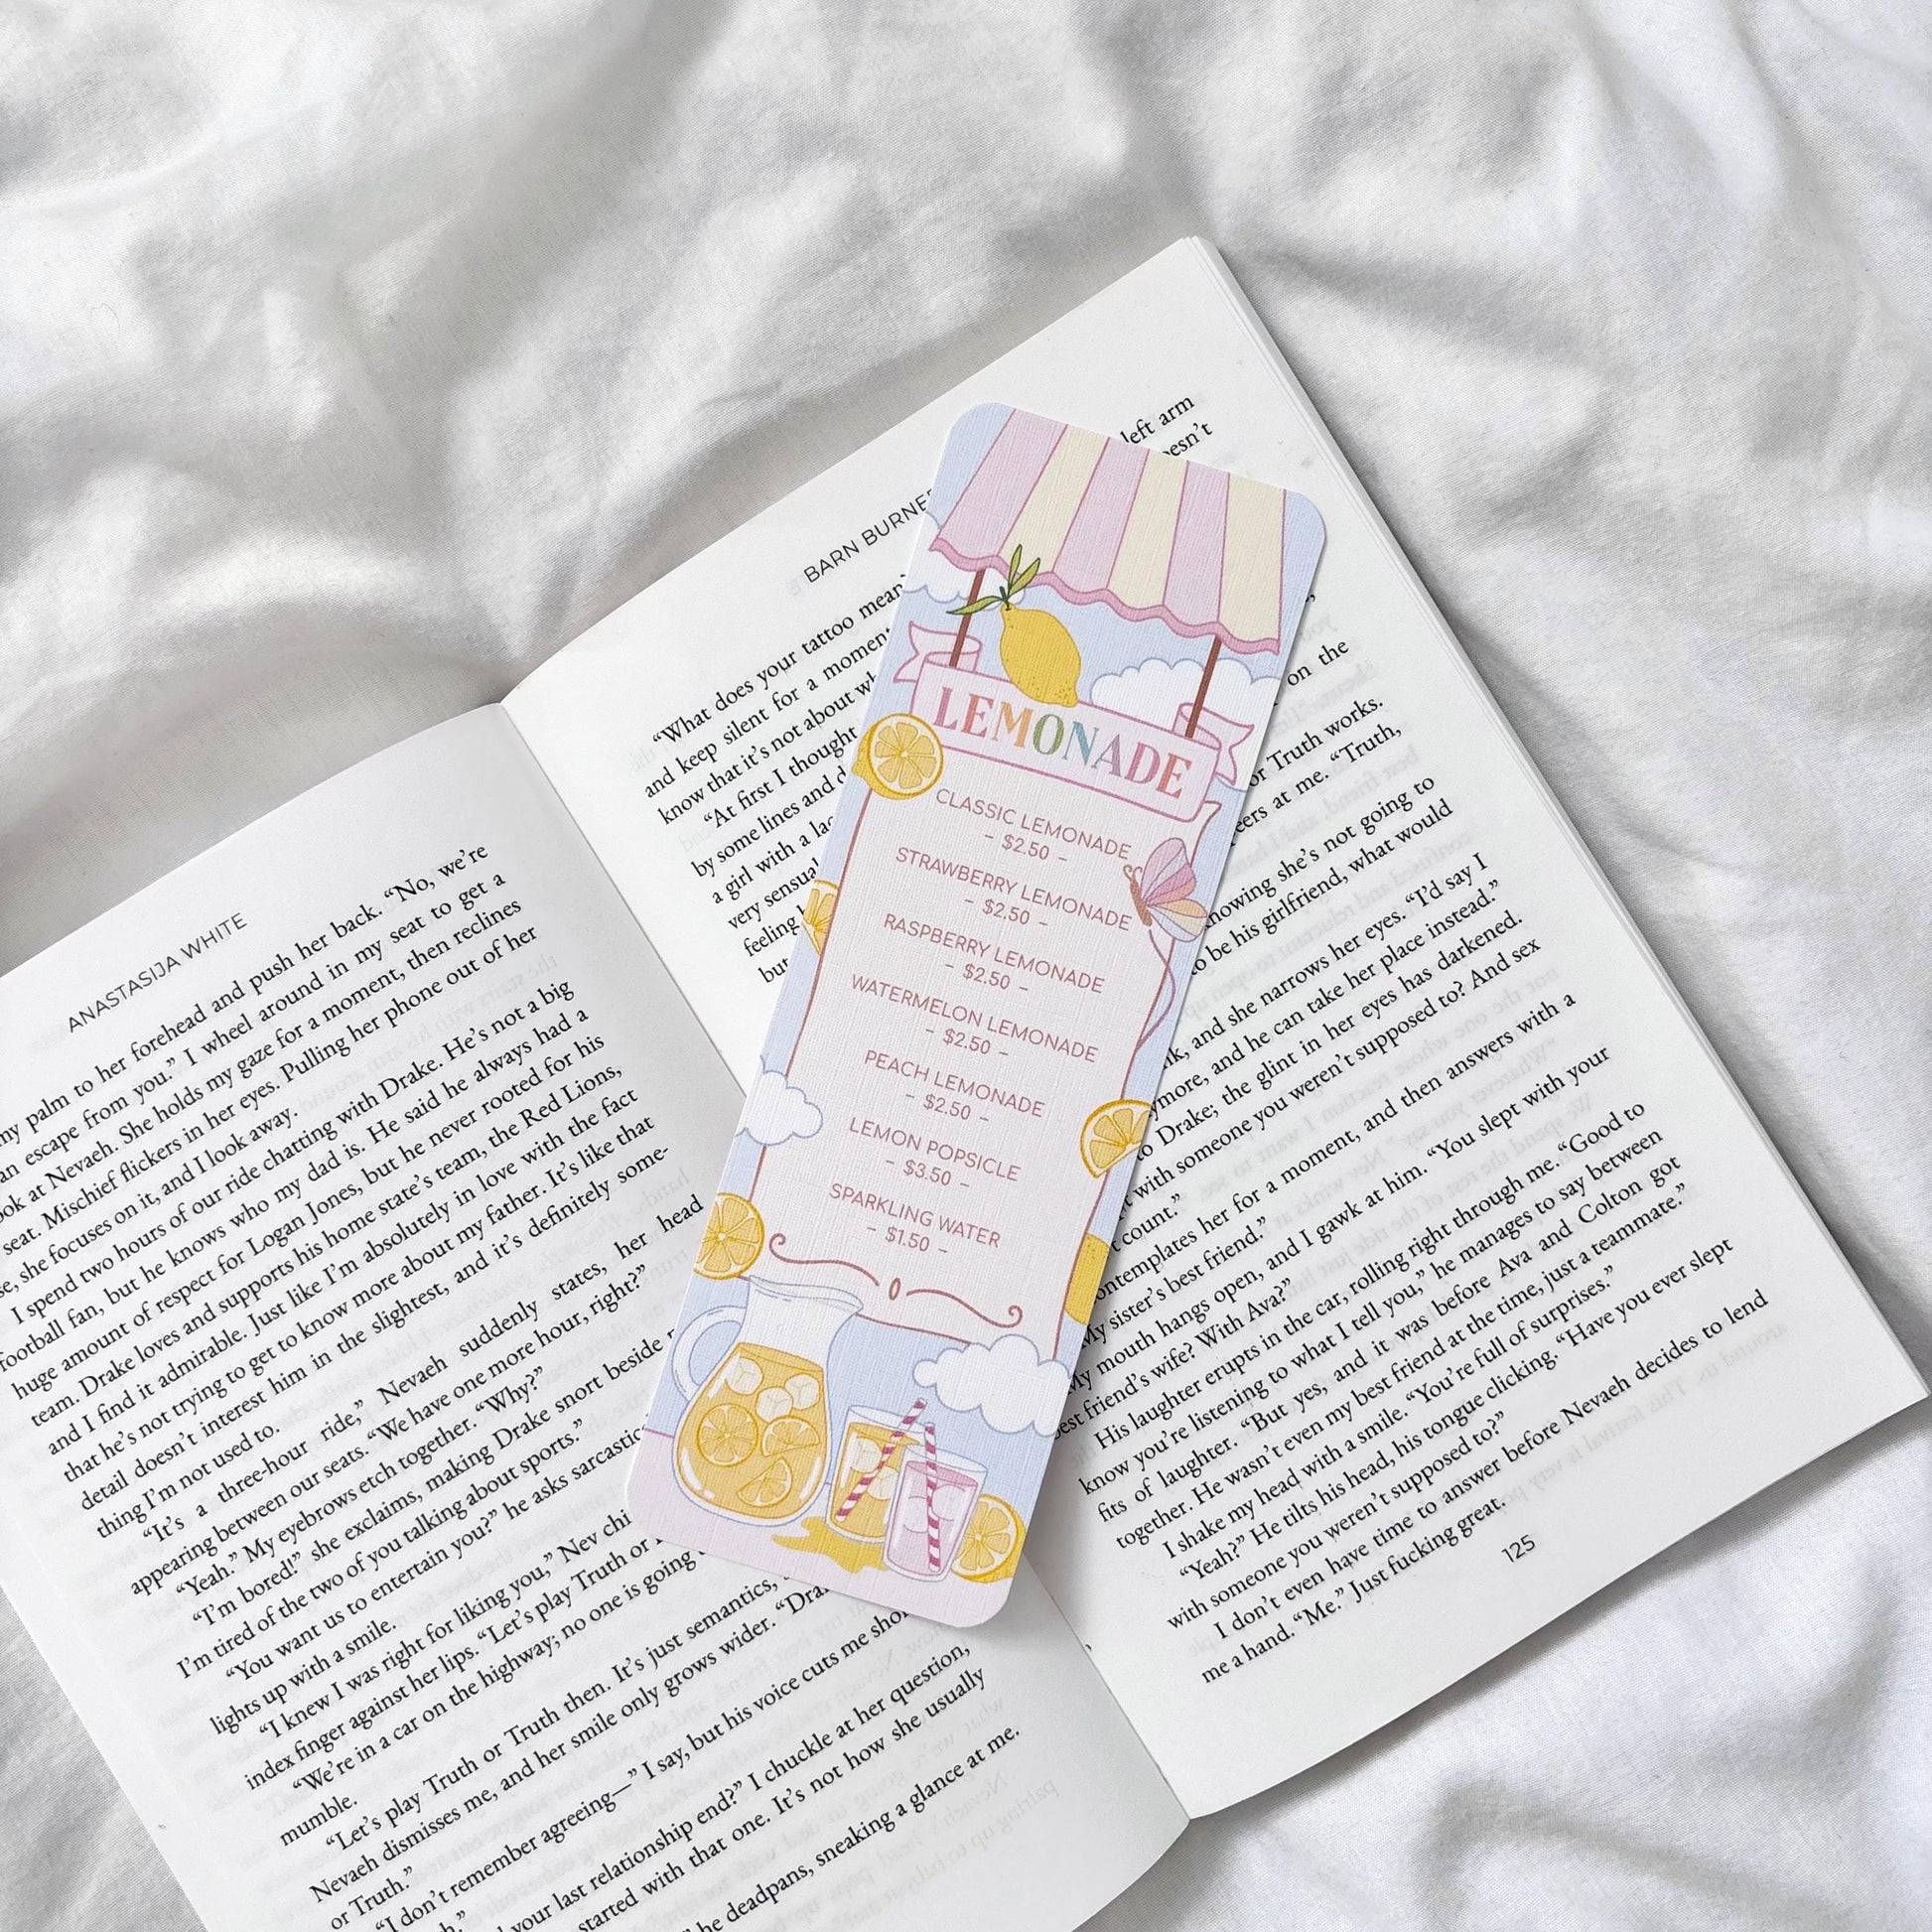 ANASTASIJA WHITE
my palm to her forehead and push her back. “No, we’re
an escape from you.” I wheel around in my seat to get a
look at Nevaeh. She holds my gaze for a moment, then reclines
seat. Mischief flickers in her eyes. Pulling her phone out of her
she focuses on it, and I look away.
I spend two hours of our ride chatting with Drake. He’s not a big
football fan, but he knows who my dad is. He said he always had a
huge amount of respect for Logan Jones, but he never rooted for his
team. Drake loves and supports his home state’s team, the Red Lions,
and I find it admirable. Just like I’m absolutely in love with the fact
that he’s not trying to get to know more about my father. It’s like that
detail doesn’t interest him in the slightest, and it’s definitely some-
thing I’m not used to.
“It’s a three-hour ride,” Nevaeh suddenly states, her head
appearing between our seats. “We have one more hour, right?”
“Yeah.” My eyebrows etch together. “Why?”
“I’m bored!” she exclaims, making Drake snort beside
I’m tired of the two of you talking about sports.”
“You want us to entertain you?” he asks
lights up with a smile.
“I knew I was right for liking you,” Nev
index finger against her lips. “Let’s play Truth or
“We’re in a car on the highway; no one is going
mumble.
“Let’s play Truth or Truth then. It’s just semantics,
Nevaeh dismisses me, and her smile only grows wider.
or Truth.”
“I don’t remember agreeing—” I say, but his voice cuts me
your last relationship end?” I chuckle at her question,
started with that one. It’s not how she usually
he deadpans, sneaking a glance at me.
BARN
left arm
“What does your tattoo
and keep silent for a
know that it’s not about
on the
“At first I thought
or Truth works.
by some lines and
at me. “Truth,
a girl with a
very
knowing she’s not going to
feeling
to be his girlfriend, what would
but
and she narrows her eyes. “I’d say I
and he can take her place instead.”
to Drake; the glint in her eyes has darkened.
with someone you weren’t supposed to? And sex
count.”
contemplates her for a moment, and then answers with a
My sister’s best friend.”
My mouth hangs open, and I gawk at him. “You slept with your
best friend’s wife? With Ava?”
His laughter erupts in the car, rolling right through me. “Good to
know you’re listening to what I tell you,” he manages to say between
fits of laughter. “But yes, and it was before Ava and Colton got
together. He wasn’t even my best friend at the time, just a teammate.”
I shake my head with a smile. “You’re full of surprises.”
“Yeah?” He tilts his head, his tongue clicking. “Have you ever slept
with someone you weren’t supposed to?”
I don’t even have time to answer before Nevaeh decides to lend
me a hand. “Me.” Just fucking great.
125
LEMONADE
CLASSIC LEMONADE
- $2.50 -
STRAWBERRY LEMONADE
- $2.50 -
RASPBERRY LEMONADE
- $2.50 -
WATERMELON LEMONADE
- $2.50 -
PEACH LEMONADE
- $2.50 -
LEMON POPSICLE
- $3.50 -
SPARKLING WATER
- $1.50 -